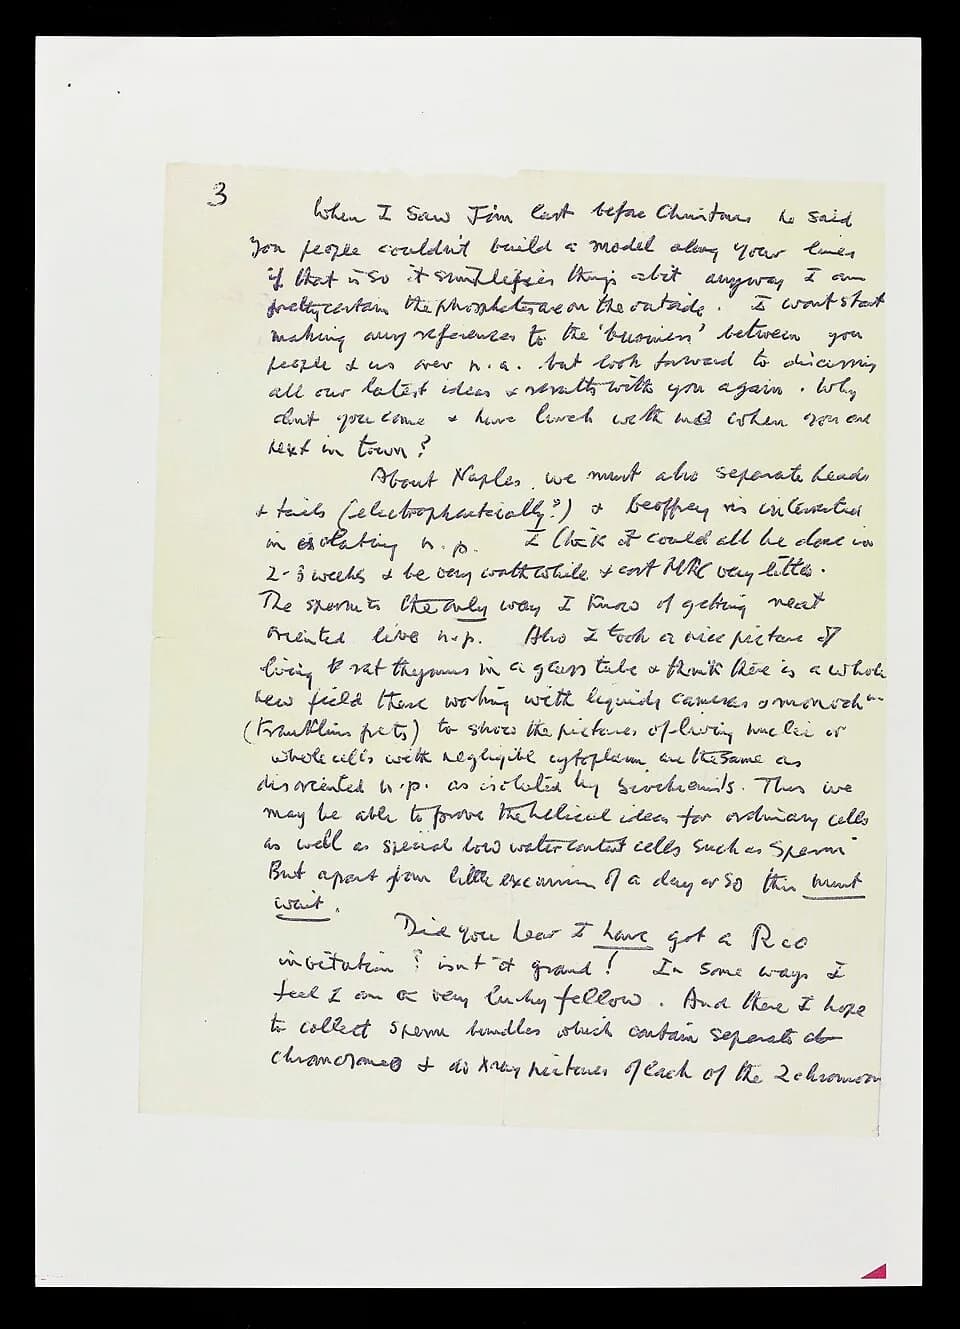 3
When I saw Jim last before Christmas he said
you people couldn't build a model along your lines
if that is so it simplifies things a bit anyway I am
pretty certain the phosphates are on the outside. I wont start
making any references to the 'business' between you
people & us over n.a. but look forward to discussing
all our latest ideas & results with you again. Why
dont you come & have lunch with me when you are
next in town?
About Naples, we must also separate heads
& tails (electrophoretically?) & Geoffrey is interested
in isolating n.p. I think it could all be done in
2-3 weeks & be very worthwhile & cost MRC very little.
The sperm is the only way I know of getting neat
oriented live n.p. Also I took a nice picture of
living rat thymus in a glass tube & think there is a whole
new field there working with liquids cameras & monoch
(Franklins pets) to show the pictures of living nuclei or
whole cells with negligible cytoplasm are the same as
disoriented n.p. as isolated by biochemists. Thus we
may be able to prove the helical ideas for ordinary cells
as well as special low water content cells such as sperm
But apart from little excursion of a day or so this must
wait.
Did you hear I have got a Rio
invitation? isn't it grand! In some ways I
feel I am a very lucky fellow. And there I hope
to collect sperm bundles which contain separate
chromosomes & do Xray pictures of each of the 2 chromosom